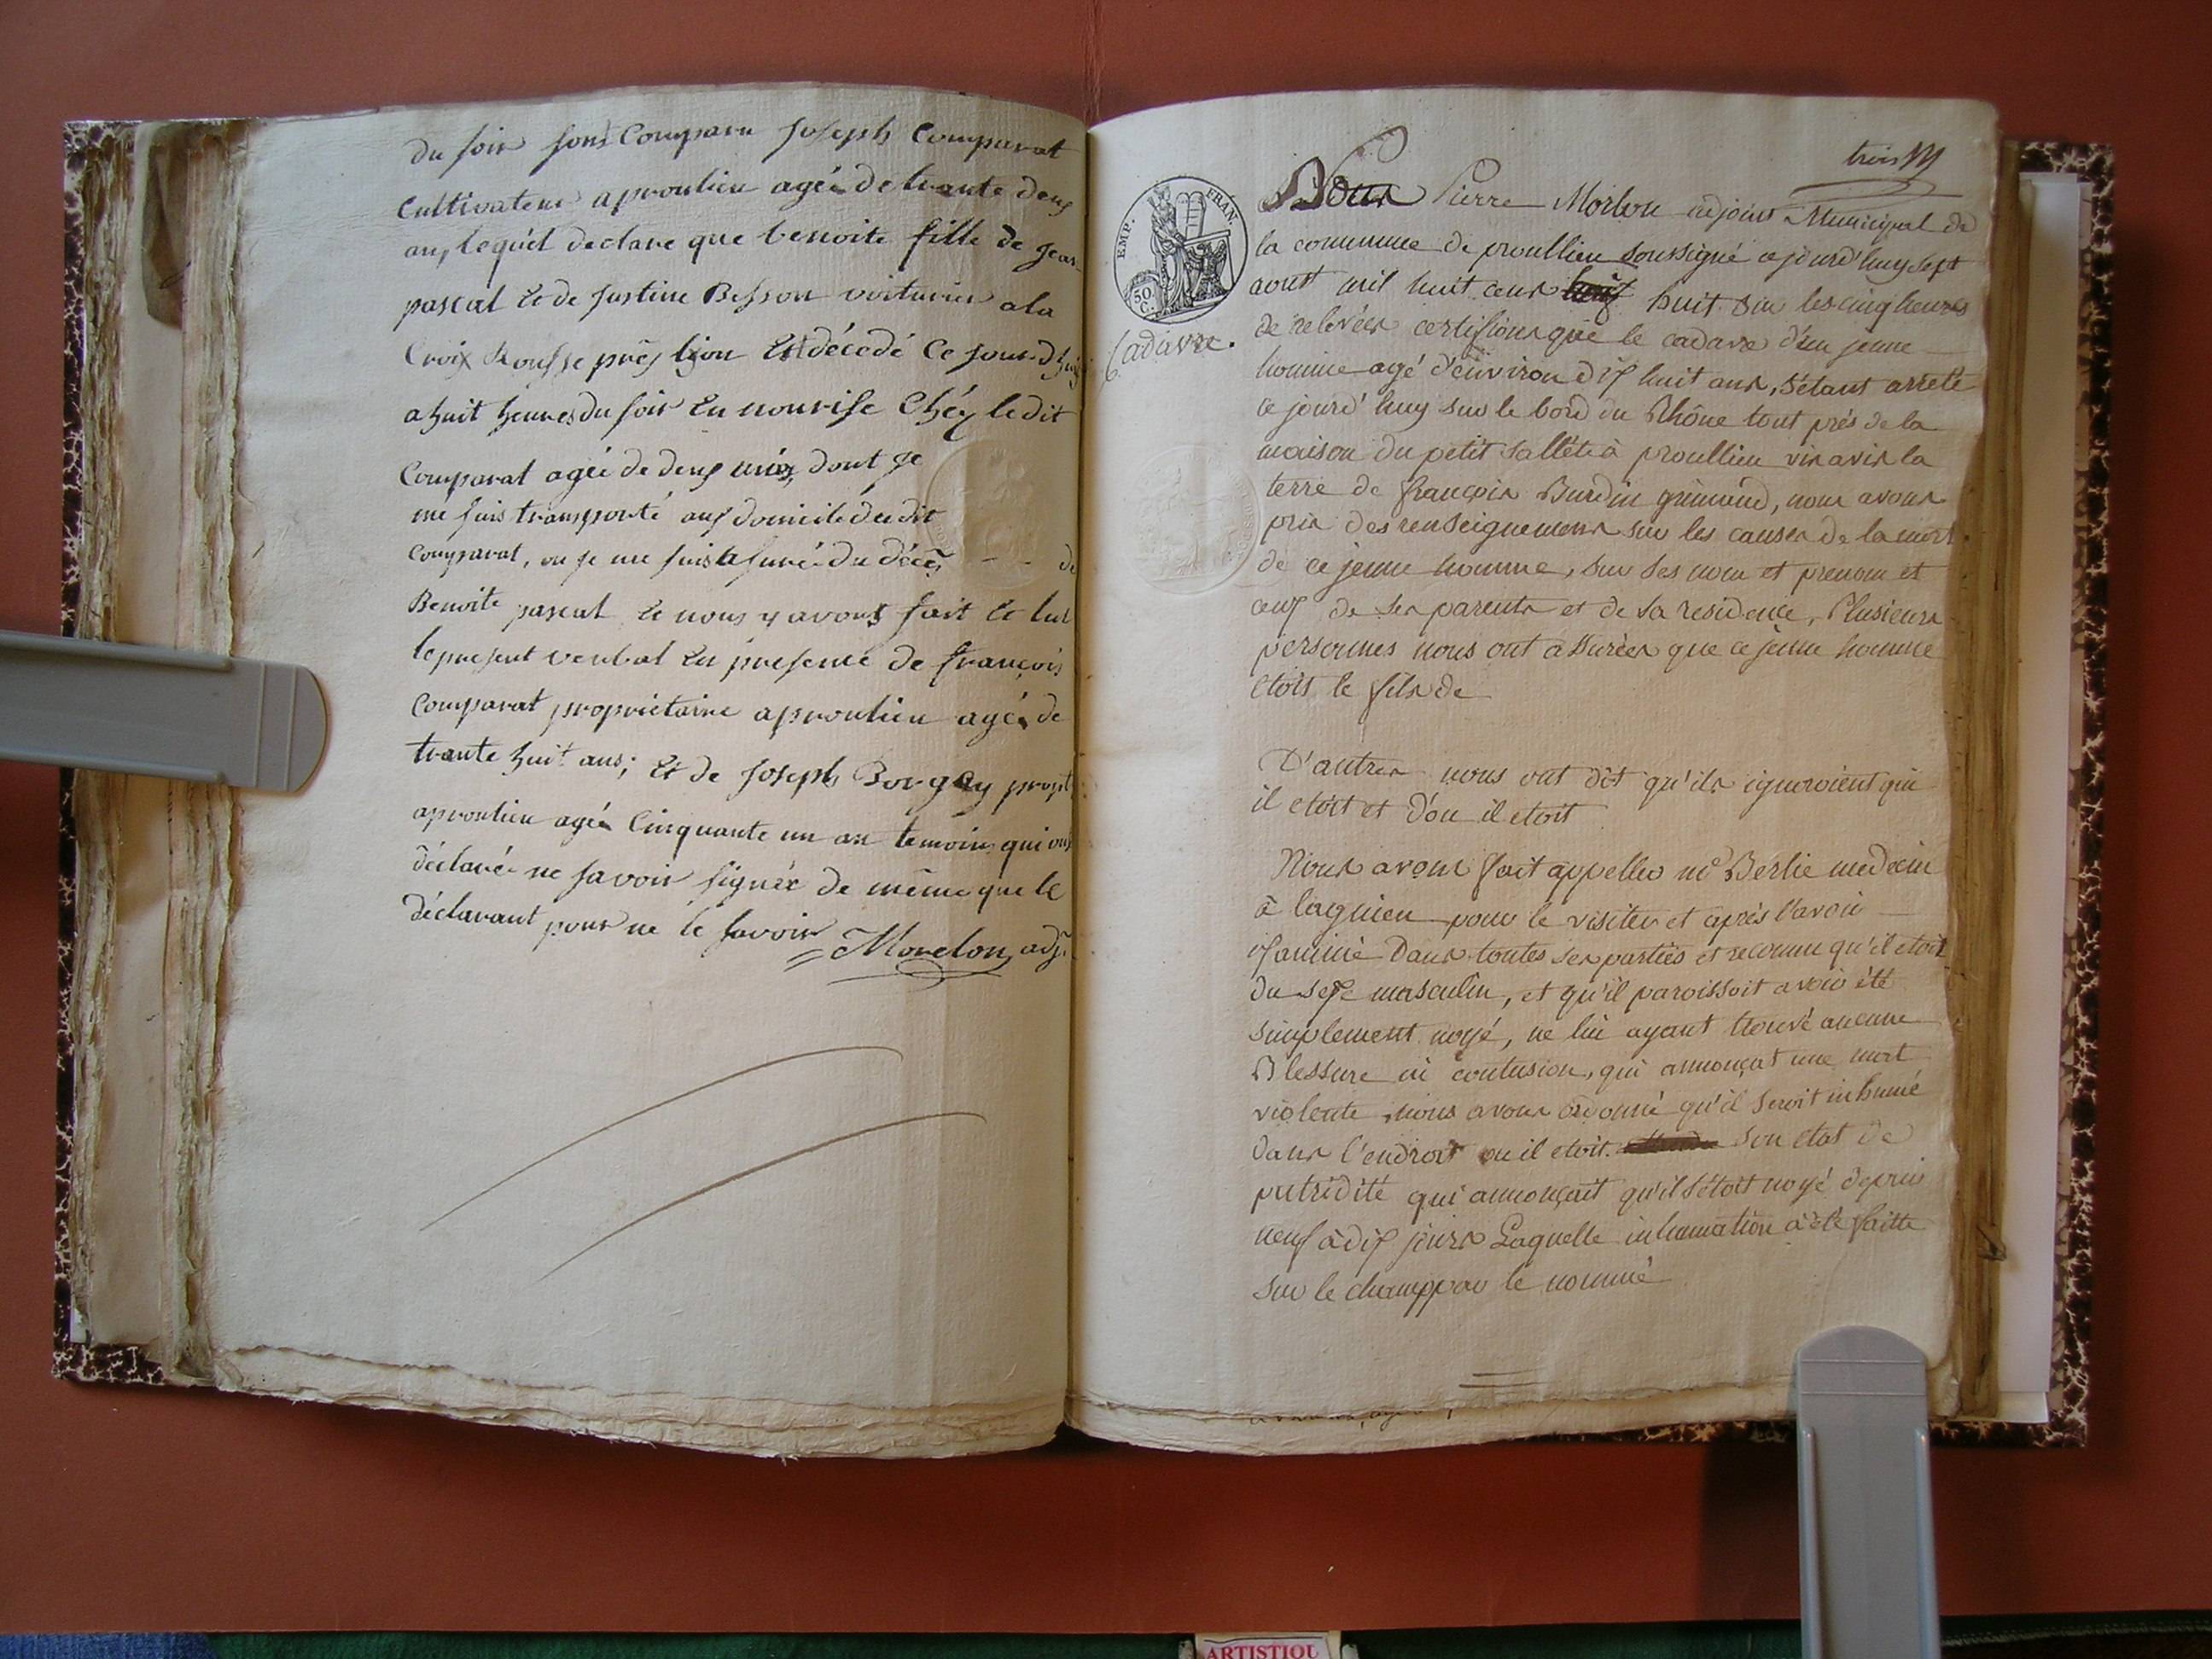 du soir sont Comparu Joseph Comparat
Cultivateur aproulieu agée de trante deux
ans, lequel declare que benoite fille de jean
pascal et de Justine Besson voiturier ala
Croix Rousse près lyon est décedé Ce jour d'huy
a huit heures du soir en nourise Chéz le dit
Comparat agée de deux mois, dont je
me suis transporté aux domicile du dit
Comparat, ou je me suis assuré du décès - - de
Benoite pascal et nous y avons fait et lus
le present verbal en presence de françois
Comparat proprietaire aproulieu agée de
trante huit ans; et de Joseph Borgey propt
aproulieu agée Cinquante un an temoins qui ont
déclaré ne savoir signéx de même que le
déclarant pour ne le savoir
Morelon, adjt
trois
EMP. FRAN
50. C.
Cadavre.
Nous Pierre Morlon adjoint Municipal de
la commune de proullieu soussigné cejourd'huy sept
aoust mil huit cens huit sur les cinq heures
de relevéer certifions que le cadavre d'un jeune
homme agé d'environ dix huit ans, s'étant arreté
ce jourd'huy sur le bord du Rhône tout près de la
maison du petit Salleté à proullieu vis avis la
terre de françois Burdin grimaud, nous avons
pris des renseignemens sur les causes de la mort
de ce jeune homme, sur ses nom et prenom et
ceux de ses parents et de sa residence, Plusieurs
personnes nous ont assurées que ce jeune homme
etoit le fils de
D'autres nous ont dit qu'ils ignoroient qui
il etoit et d'ou il etoit
Nous avons fait appeller mr Berlie medecin
à lagnieu pour le visiter et après l'avoir
examiné dans toutes ses parties et reconnu qu'il etoit
du sexe masculin, et qu'il paroissoit avoir été
simplement noyé, ne lui ayant trouvé aucune
Blessure ni contusion, qui annonçat une mort
violente, nous avons ordonné qu'il seroit inhumé
dans l'endroit ou il etoit. son etat de
putridité qui annonçait qu'il s'étoit noyé depuis
neuf à dix jours Laquelle inhumation à été faitte
sur le champ par le nommé
ARTISTIQU